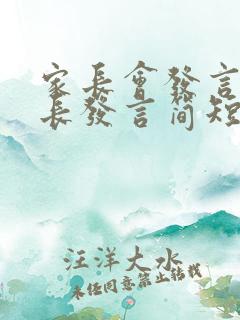 家長會發言
長發言简短
汪洋大水
未经同意禁止转载